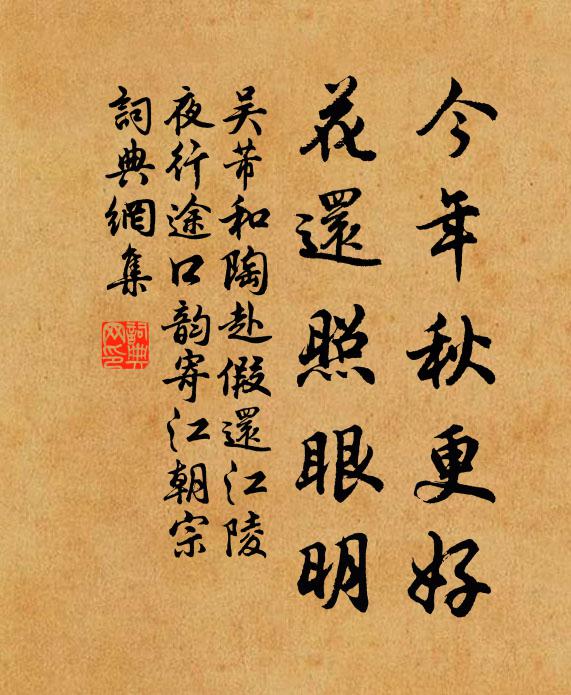 今年秋更好
花還照眼明
吴芾和陶赴假還江陵
夜行途口韵寄江朝宗
詞典網集
詞典
网印